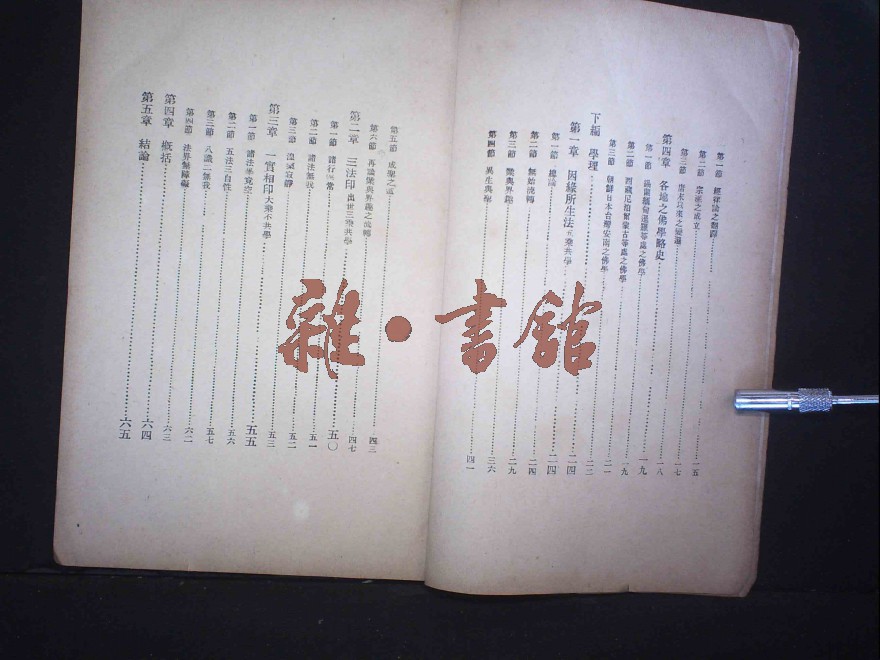 第一節 經律論之翻譯……一五
第二節 宗派之成立……一七
第三節 唐末以來之變遷……一八
第四章 各地之佛學略史……一九
第一節 錫蘭緬甸暹羅等處之佛學……一九
第二節 西藏尼泊爾蒙古等處之佛學……二一
第三節 朝鮮日本台灣安南之佛學……二三
下編 學理……二四
第一章 因緣所生法五乘共學……二四
第一節 概論……二四
第二節 無始流轉……二九
第三節 業與界趣……三六
第四節 異生與聖……四一
第五節 成聖之道……四三
第六節 再論業與界趣之流轉……四七
第二章 三法印出世三乘共學……五〇
第一節 諸行無常……五一
第二節 諸法無我……五二
第三節 涅槃寂靜……五三
第三章 一實相印大乘不共學……五五
第一節 諸法畢竟空……五六
第二節 五法三自性……五七
第三節 八識二無我……六二
第四節 法界無障礙……六三
第四章 概括……六四
第五章 結論……六五
雜·書館